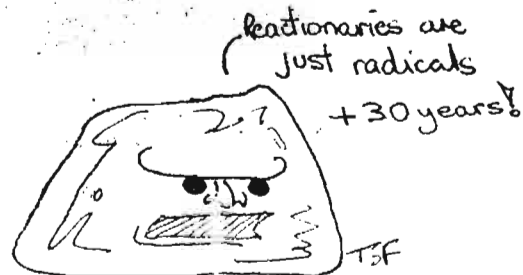 Reactionaries are
just radicals
+30 years!
TSF